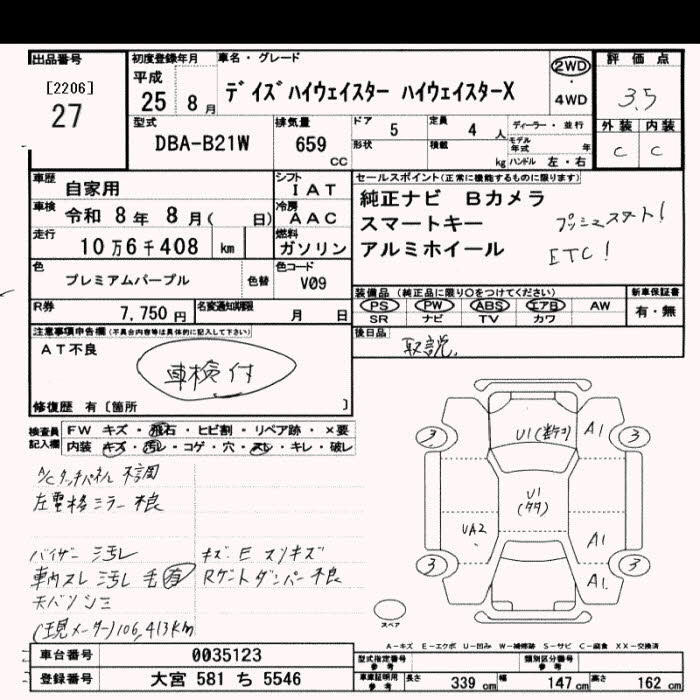 出品番号
[2206]
27
初度登録年月
平成
25年 8月
車名・グレード
デイズハイウェイスター ハイウェイスターX
2WD
・
4WD
評価点
3.5
外装 内装
C C
型式
DBA-B21W
排気量
659
CC
ドア 5
定員 4 人
形状
積載 kg
ディーラー・並行
モデル年式 年
ハンドル 左・右
車歴 自家用
シフト IAT
車検 令和 8年 8月( 日)
冷房 AAC
走行 10万6千408 km
燃料 ガソリン
色 プレミアムパープル
色替
色コード V09
R券 7,750円
名変通知期限 月 日
セールスポイント(正常に機能するものに限ります)
純正ナビ Bカメラ
スマートキー プッシュスタート!
アルミホイール ETC!
装備品(純正品に限り○をつけてください)
PS PW ABS エアB AW
SR ナビ TV カワ
新車保証書
有・無
後日品
取説
注意事項申告欄(不具合内容等は具体的に記入して下さい)
AT不良
車検付
修復歴 有〔箇所 〕
検査員記入欄
FW キズ・飛石・ヒビ割・リペア跡・×要
内装 キズ・汚レ・コゲ・穴・スレ・キレ・破レ
A/Cタッチパネル 不調
左電格ミラー 不良
バイザー 汚レ
キズ・E スリキズ
車内スレ 汚レ 毛有
Rゲートダンパー不良
天バリシミ
(現メーター)106,413km
3 3
A1
U1
A1
UA2
A1
3 3
スペア
A-キズ E-エクボ U-凹み W-補修跡 S-サビ C-腐食 XX-交換済
車台番号 0035123
登録番号 大宮 581 ち 5546
型式指定番号 参考
類別区分番号 参考
車庫証明用 参考
長さ 339 cm
幅 147 cm
高さ 162 cm